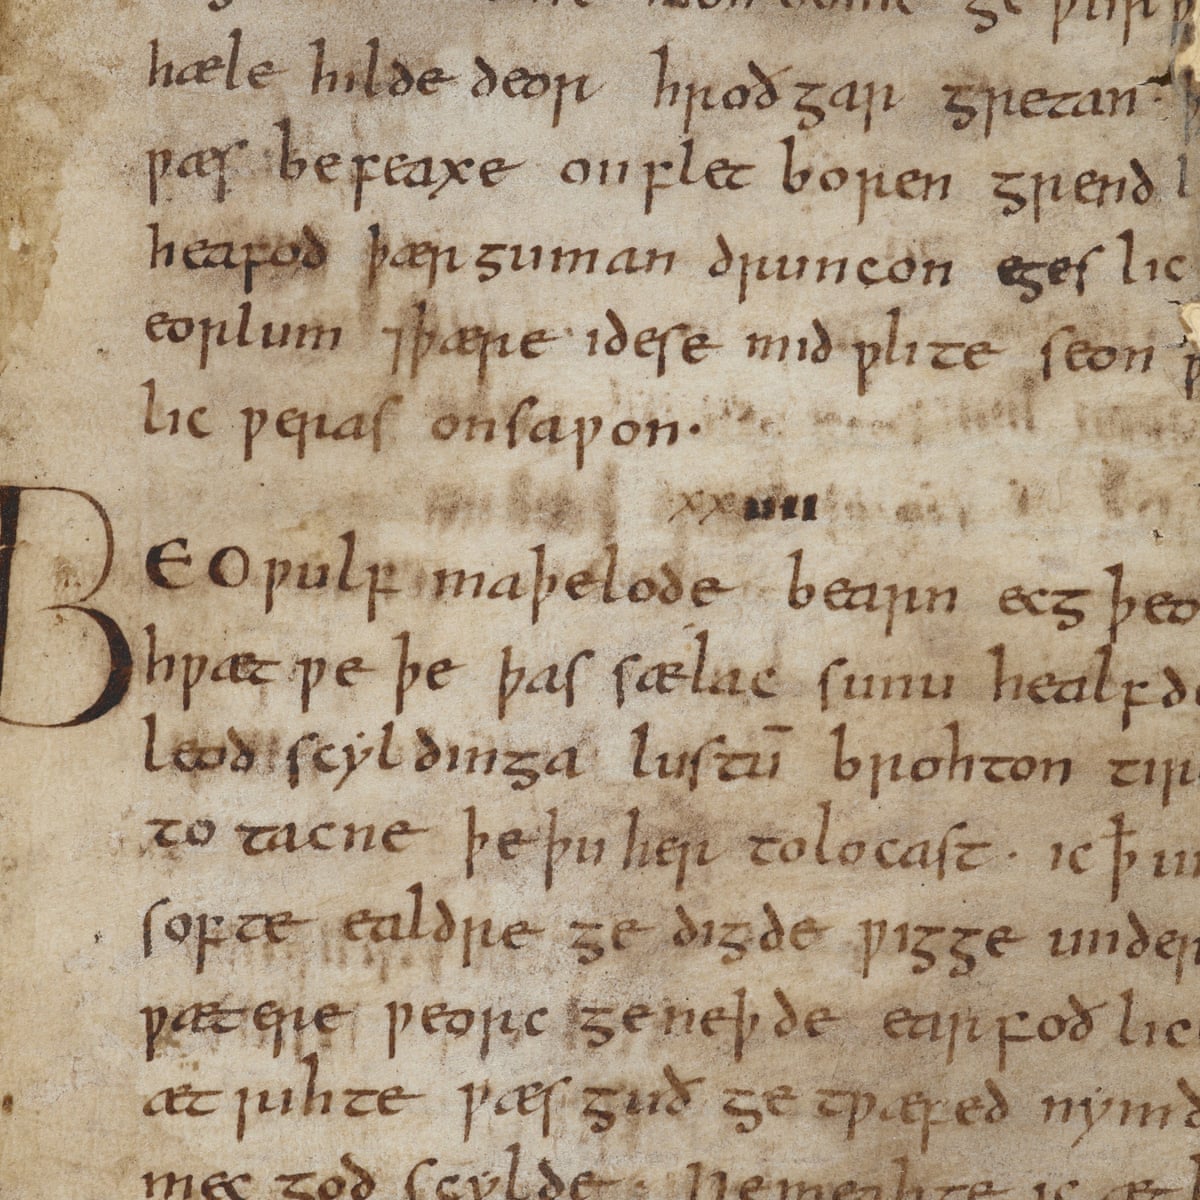 hæle hilde deor hroðgar gretan·
ƿæs be feaxe on flet boren grend l
heafod þær guman druncon eges lic
eorlum ⁊þære idese mid ƿlite seon ƿ
lic ƿeras onsaƿon·
xxiiii
BEOƿulf maþelode bearn ecg þeo
hƿæt ƿe þe þas sælac sunu healfd
leod scyldinga lustū brohton tir
to tacne þe þu her to locast· ic ꝥ un
softe ealdre ge digde ƿigge under
ƿætere ƿeorc geneþde earfoð lic
æt rihte ƿæs guð ge tƿæfed nymð
mec god scylde· Ne meahte ic æt